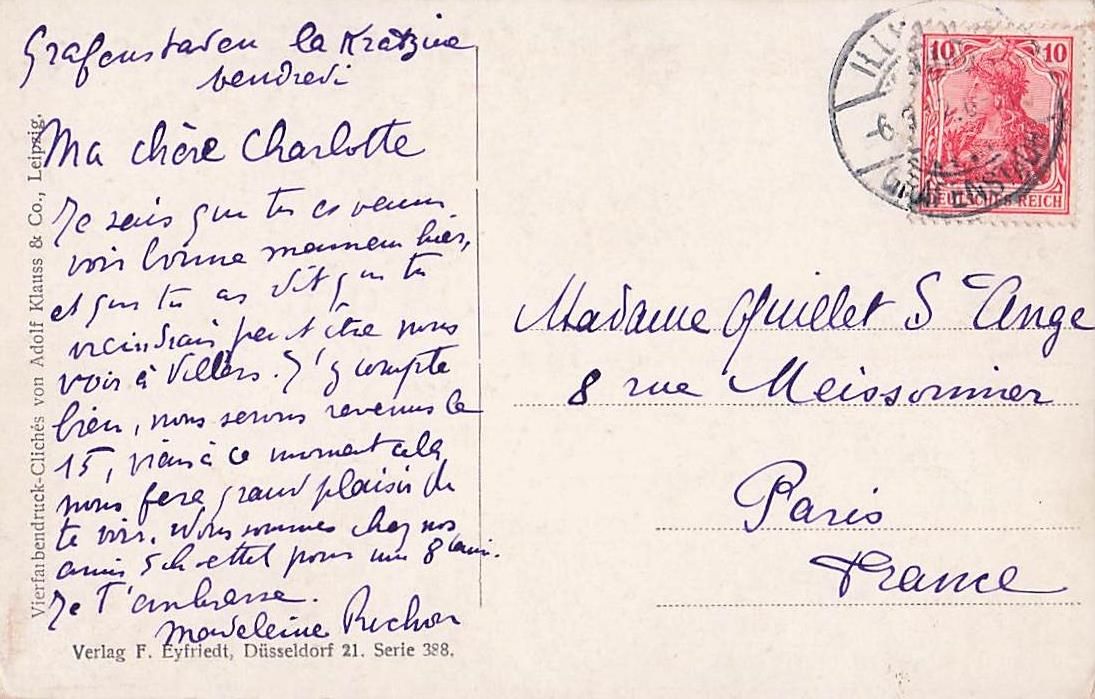 Grafenstaden la Kratzine
vendredi
Ma chère Charlotte
Je sais que tu es venue
voir bonne maman hier,
et que tu as dit que tu
viendrais peut être nous
voir à Villers. J'y compte
bien, nous serons revenus le
15, viens à ce moment cela
nous fera grand plaisir de
te voir. Nous sommes chez nos
amis Schettel pour une 8aine.
Je t'embrasse.
Madeleine
Vierfarbendruck-Clichés von Adolf Klauss & Co., Leipzig.
Verlag F. Eyfriedt, Düsseldorf 21. Serie 388.
10 10
DEUTSCHES REICH
GRAFENSTADEN
Madame Quillet St Ange
8 rue Meissonnier
Paris
France